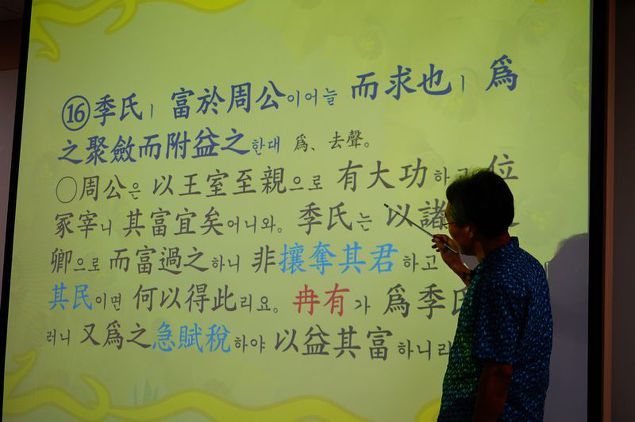 ⑯季氏ㅣ 富於周公이어늘 而求也ㅣ 爲
之聚斂而附益之한대 爲、去聲。
○周公은 以王室至親으로 有大功하고 位
冢宰니 其富宜矣어니와。 季氏는 以諸
卿으로 而富過之하니 非攘奪其君하고
其民이면 何以得此리요。 冉有가 爲季氏
러니 又爲之急賦稅하야 以益其富하니라